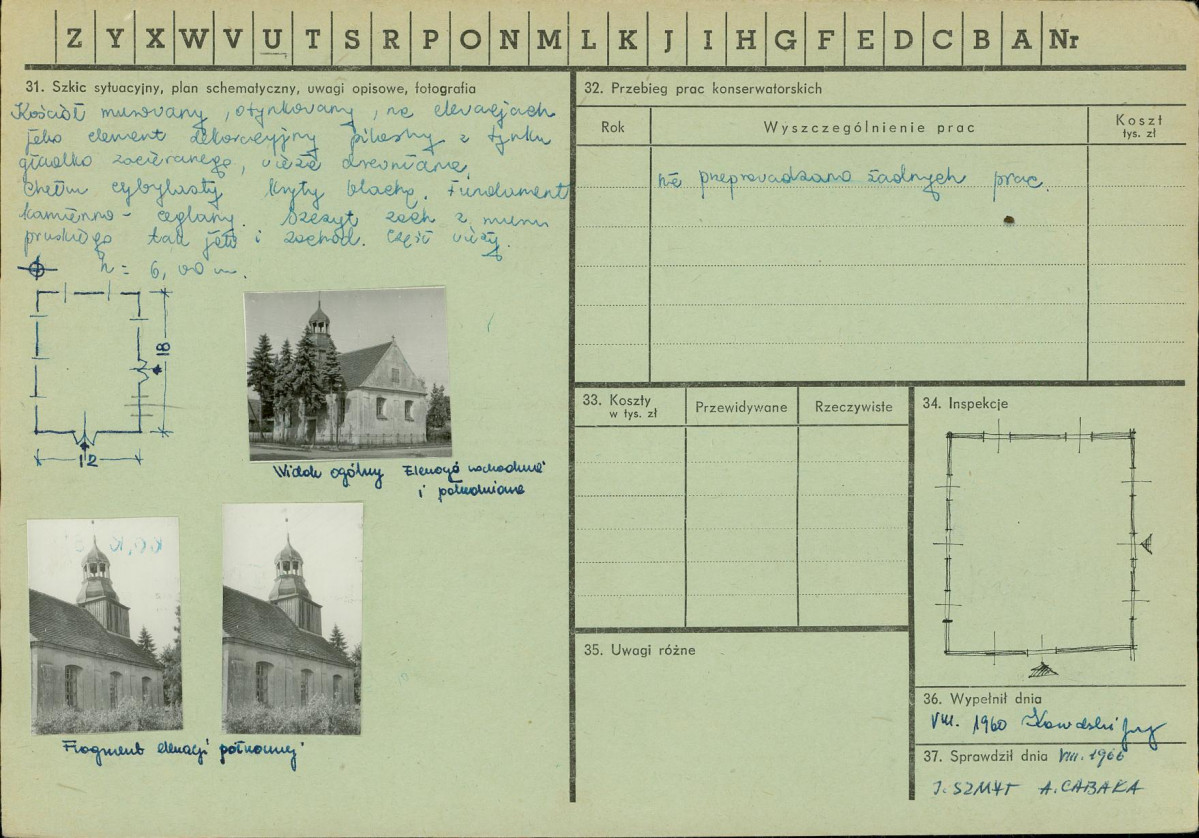 Z Y X W V U T S R P O N M L K J I H G F E D C B A Nr
31. Szkic sytuacyjny, plan schematyczny, uwagi opisowe, fotografia
Kościół murowany, otynkowany, na elewacjach
jako element dekoracyjny pilastry z tynku
gładko zacieranego, wieża drewniana,
Chełm cebulasty kryty blachą. Fundament
kamienno-ceglany. Szczyt zach z muru
pruskiego tak jak i zachod. część wieży.
h = 6,00 m.
18
12
Widok ogólny Elewacja wschodnia
i południowa
Fragment elewacji północnej
32. Przebieg prac konserwatorskich
Rok
Wyszczególnienie prac
Koszt
tys. zł
nie przeprowadzano żadnych prac.
33. Koszty
w tys. zł
Przewidywane
Rzeczywiste
34. Inspekcje
35. Uwagi różne
36. Wypełnił dnia
VIII. 1960 Kowalski
37. Sprawdził dnia VIII. 1966
J. SZMYT A. CABAŁA